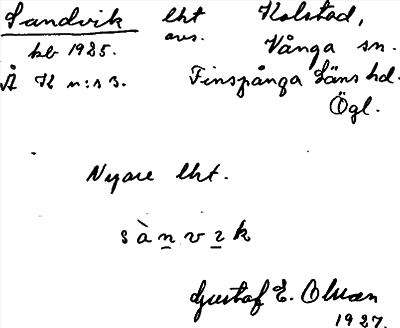 Sandvik lht Kolstad,
kb 1925. avs. Vånga sn.
Å K n:s 3. Finspånga Läns hd.
Ögl.
Nyare lht.
sànvɪk
Gustaf E. Olsson
1927.